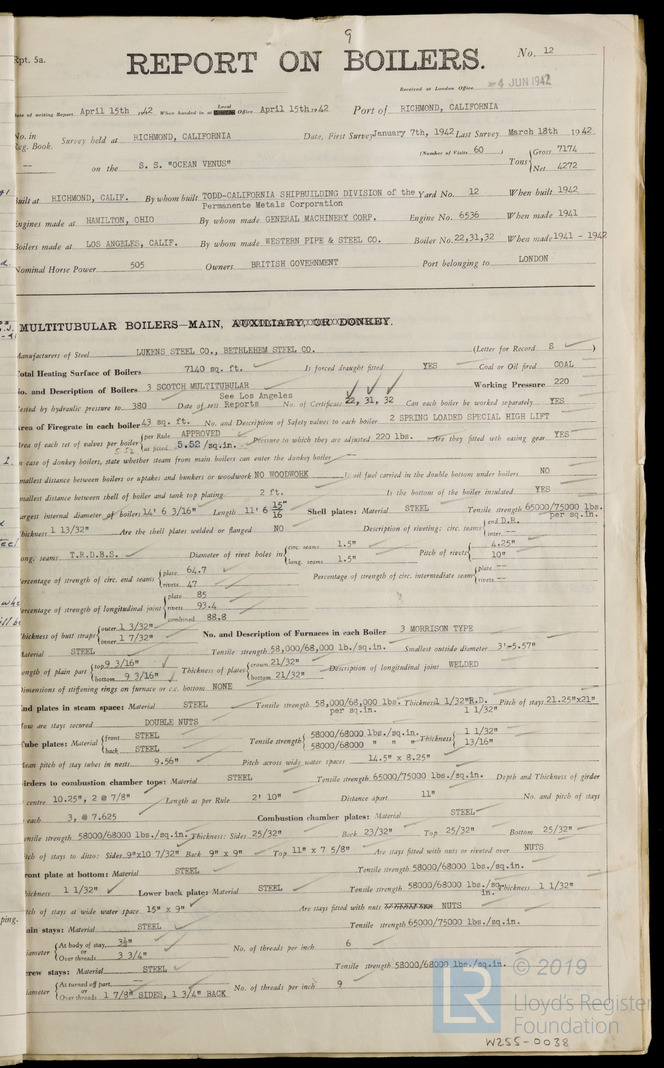 9
Rpt. 5a.
REPORT ON BOILERS.
No. 12
Received at London Office
4 JUN 1942
Date of writing Report April 15th 1942 When handed in at Local Office April 15th 1942 Port of RICHMOND, CALIFORNIA
No. in Reg. Book. Survey held at RICHMOND, CALIFORNIA Date, First Survey January 7th, 1942 Last Survey March 18th 1942
(Number of Visits 60)
on the S. S. "OCEAN VENUS" Tons Gross 7174 Net 4272
Built at RICHMOND, CALIF. By whom built TODD-CALIFORNIA SHIPBUILDING DIVISION of the Permanente Metals Corporation Yard No. 12 When built 1942
Engines made at HAMILTON, OHIO By whom made GENERAL MACHINERY CORP. Engine No. 6536 When made 1941
Boilers made at LOS ANGELES, CALIF. By whom made WESTERN PIPE & STEEL CO. Boiler No. 22,31,32 When made 1941 - 1942
Nominal Horse Power 505 Owners BRITISH GOVERNMENT Port belonging to LONDON
MULTITUBULAR BOILERS—MAIN, AUXILIARY, OR DONKEY.
Manufacturers of Steel LUKENS STEEL CO., BETHLEHEM STEEL CO. (Letter for Record S)
Total Heating Surface of Boilers 7140 sq. ft. Is forced draught fitted YES Coal or Oil fired COAL
No. and Description of Boilers 3 SCOTCH MULTITUBULAR Working Pressure 220
Tested by hydraulic pressure to 380 Date of test See Los Angeles Reports No. of Certificate 22, 31, 32 Can each boiler be worked separately YES
Area of Firegrate in each boiler 43 sq. ft. No. and Description of Safety valves to each boiler 2 SPRING LOADED SPECIAL HIGH LIFT
Area of each set of valves per boiler per Rule APPROVED as fitted 5.52 /sq.in. Pressure to which they are adjusted 220 lbs. Are they fitted with easing gear YES
5.52
In case of donkey boilers, state whether steam from main boilers can enter the donkey boiler —
Smallest distance between boilers or uptakes and bunkers or woodwork NO WOODWORK Is oil fuel carried in the double bottom under boilers NO
Smallest distance between shell of boiler and tank top plating 2 ft. Is the bottom of the boiler insulated YES
Largest internal diameter of boilers 14' 6 3/16" Length 11' 6 15/16" Shell plates: Material STEEL Tensile strength 65000/75000 lbs. per sq.in.
Thickness 1 13/32" Are the shell plates welded or flanged NO Description of riveting: circ. seams end D.R. inter. --
Long. seams T.R.D.B.S. Diameter of rivet holes in circ. seams 1.5" long. seams 1.5" Pitch of rivets 4.25" 10"
Percentage of strength of circ. end seams plate 64.7 rivets 47 Percentage of strength of circ. intermediate seam plate -- rivets --
Percentage of strength of longitudinal joint plate 85 rivets 93.4 combined 88.8
Thickness of butt straps outer 1 3/32" inner 1 7/32" No. and Description of Furnaces in each Boiler 3 MORRISON TYPE
Material STEEL Tensile strength 58,000/68,000 lb./sq.in. Smallest outside diameter 3'-5.57"
Length of plain part top 9 3/16" bottom 9 3/16" Thickness of plates crown 21/32" bottom 21/32" Description of longitudinal joint WELDED
Dimensions of stiffening rings on furnace or c.c. bottom NONE
End plates in steam space: Material STEEL Tensile strength 58,000/68,000 lbs. per sq.in. Thickness 1 1/32" R.D. 1 1/32" Pitch of stays 21.25"x21"
How are stays secured DOUBLE NUTS
Tube plates: Material front STEEL back STEEL Tensile strength 58000/68000 lbs./sq.in. 58000/68000 " " " Thickness 1 1/32" 13/16"
Mean pitch of stay tubes in nests 9.56" Pitch across wide water spaces 14.5" x 8.25"
Girders to combustion chamber tops: Material STEEL Tensile strength 65000/75000 lbs./sq.in. Depth and Thickness of girder
centre 10.25", 2 @ 7/8" Length as per Rule 2' 10" Distance apart 11" No. and pitch of stays
each 3, @ 7.625 Combustion chamber plates: Material STEEL
Tensile strength 58000/68000 lbs./sq.in. Thickness: Sides 25/32" Back 23/32" Top 25/32" Bottom 25/32"
Pitch of stays to ditto: Sides 9"x10 7/32" Back 9" x 9" Top 11" x 7 5/8" Are stays fitted with nuts or riveted over NUTS
Front plate at bottom: Material STEEL Tensile strength 58000/68000 lbs./sq.in.
Thickness 1 1/32" Lower back plate: Material STEEL Tensile strength 58000/68000 lbs./sq. in. Thickness 1 1/32"
Pitch of stays at wide water space 15" x 9" Are stays fitted with nuts NUTS
Main stays: Material STEEL Tensile strength 65000/75000 lbs./sq.in.
Diameter At body of stay, or Over threads 3 3/4" No. of threads per inch 6
Screw stays: Material STEEL Tensile strength 58000/68000 lbs./sq.in.
Diameter At turned off part, or Over threads 1 7/8" SIDES, 1 3/4" BACK No. of threads per inch 9
LR
© 2019
Lloyd's Register
Foundation
W255-0038